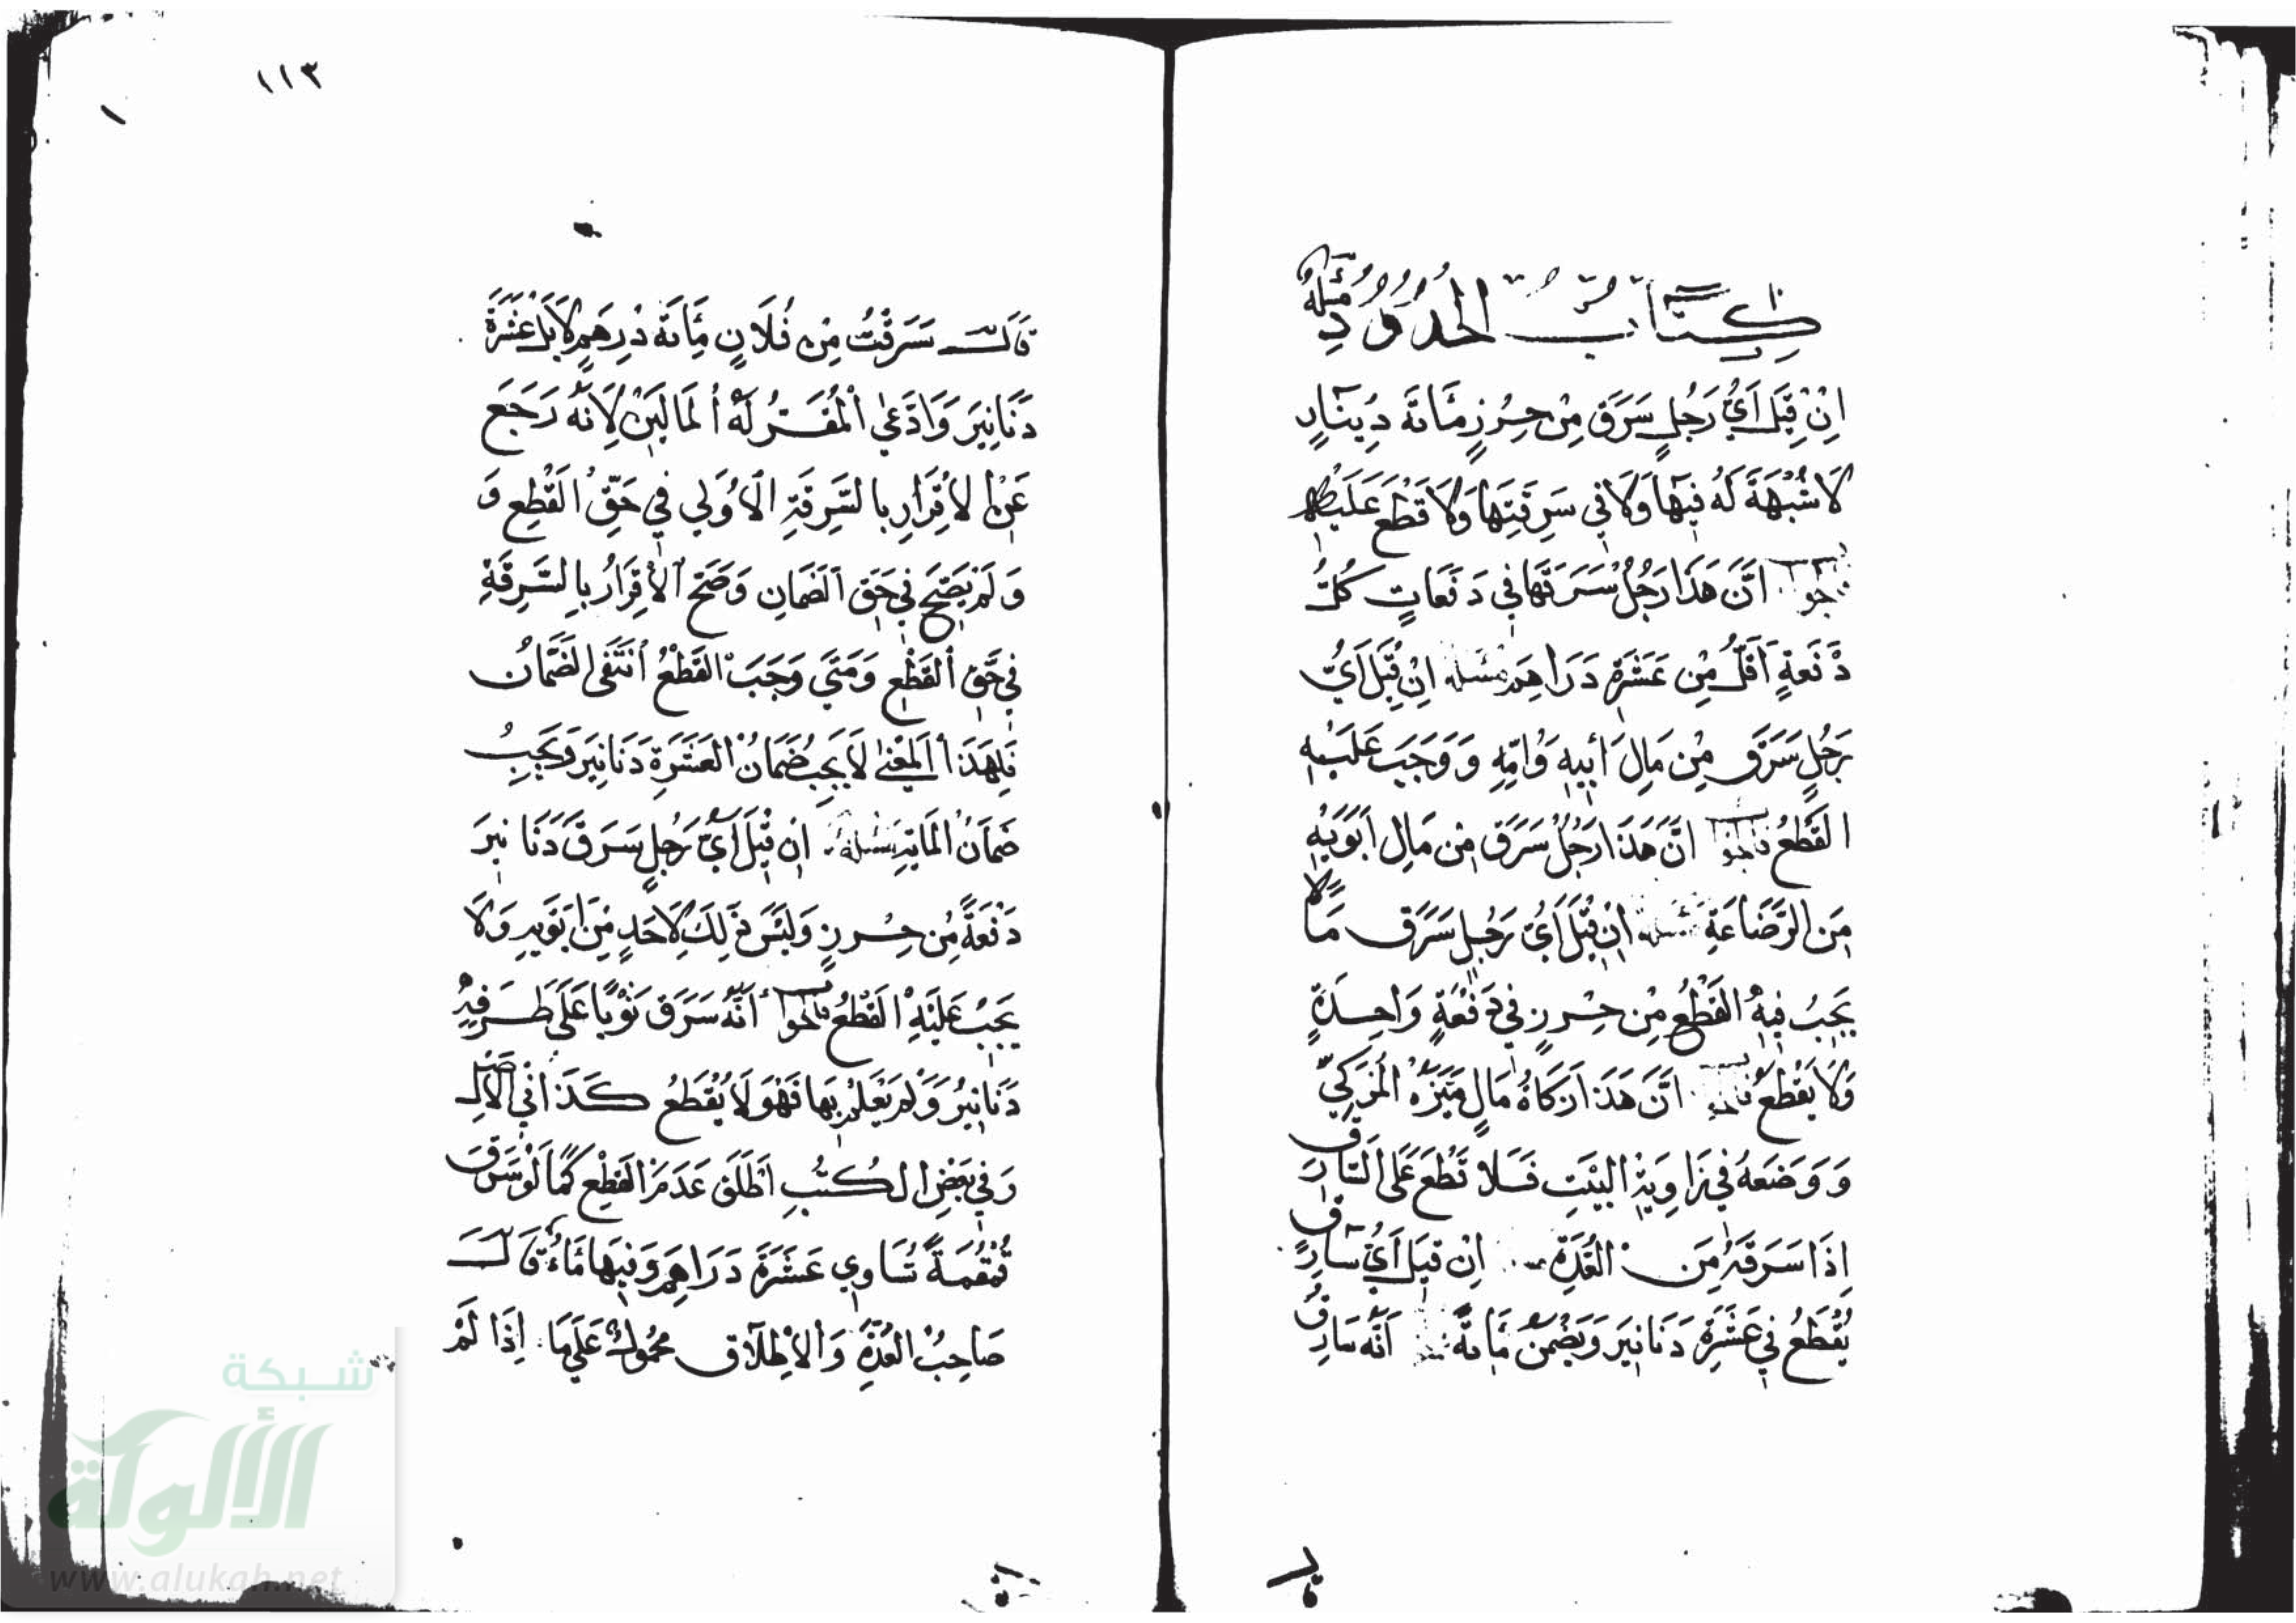 كِتَابُ الحُدُودِ مسئلة
اِنْ قِيَل اَيُّ رَجُلٍ سَرَقَ مِنْ حِرْزٍ مَائَةَ دِينَارٍ
لَا شُبْهَةَ لَهُ فِيهَا وَلَا فِي سَرِقَتِهَا وَلَا قَطْعَ عَلَيْهِ
اَنَّ هَذَا رَجُلٌ سَرَقَهَا فِي دَفَعَاتٍ كُلُّ
دَفْعَةٍ اَقَلُّ مِنْ عَشَرَةِ دَرَاهِمَ مسئلة اِنْ قِيَل اَيُّ
رَجُلٍ سَرَقَ مِنْ مَالِ اَبِيهِ وَاُمِّهِ وَوَجَبَ عَلَيْهِ
القَطْعُ فالجواب اَنَّ هَذَا رَجُلٌ سَرَقَ مِنْ مَالِ اَبَوَيْهِ
مِنَ الرَّضَاعَةِ مسئلة اِنْ قِيلَ اَيُّ رَجُلٍ سَرَقَ مَالًا
يَجِبُ فِيهِ القَطْعُ مِنْ حِرْزٍ فِي دَفْعَةٍ وَاحِدَةٍ
وَلَا يُقْطَعُ اَنَّ هَذَا زَكَاةُ مَالٍ مَيَّزَهُ الْمُزَكِّيُّ
وَوَضَعَهُ فِي زَاوِيَةِ البَيْتِ فَلَا قَطْعَ عَلَى السَّارِقِ
اِذَا سَرَقَهُ مِنَ العُدَّةِ اِنْ قِيَل اَيُّ سَارِقٍ
يُقْطَعُ فِي عَشَرَةِ دَنَانِيَر وَيَضْمَنُ مَائَةً اَنَّهُ سَارِقٌ
١١٣
قَالَ سَرَقْتُ مِنْ فُلَانٍ مِائَةَ دِرْهَمٍ لَا بَلْ عَشَرَةَ
دَنَانِيَر وَادَّعَى الْمُقَرُّ لَهُ الْمَالَيْنِ لِاَنَّهُ رَجَعَ
عَنِ الاِقْرَارِ بِالسَّرِقَةِ الاُولَي فِي حَقِّ القَطْعِ وَ
وَلَمْ يَصِحَّ فِي حَقِّ الضَمَانِ وَصَحَّ الاِقْرَارُ بِالسَّرِقَةِ
فِي حَقِّ القَطْعِ وَمَتَي وَجَبَ القَطْعُ اَنْتَفَى الضَّمَانُ
فَلِهَذَا المَعْنَى لَا يَجِبُ ضَمَانُ العَشَرَةِ دَنَانِيَر وَيَجِبُ
ضَمَانُ المَايَةِ مسئلة اِنْ قِيَل اَيُّ رَجُلٍ سَرَقَ دَنَانِيرَ
دَفْعَةً مِنْ حِرْزٍ وَلَيْسَ ذَلِكَ لِاَحَدٍ مِنَ اَبَوَيهِ وَلَا
يَجِبُ عَلَيْهِ القَطْعُ فالجواب اَنَّهُ سَرَقَ ثَوْبًا عَلَى طَرَفِهِ
دَنَانِيرُ وَلَمْ يَعْلَمْ بِهَا فَهْوَ لَا يُقْطَعُ كَذَا فِي الاَصْلِ
وَفِي بَعْضِ الكُتُبِ اَطْلَقَ عَدَمَ القَطْعِ كَمَا لَوْ سَرَقَ
قُمْقُمَةً تُسَاوِي عَشَرَةَ دَرَاهِمَ وَفِيهَا مَاءٌ قَالَ
صَاحِبُ العُدَّةِ وَالاِطْلَاقِ مَحْمُولٌ عَلَي مَا اِذَا لَمْ
شبكة
الألوكة
www.alukah.net